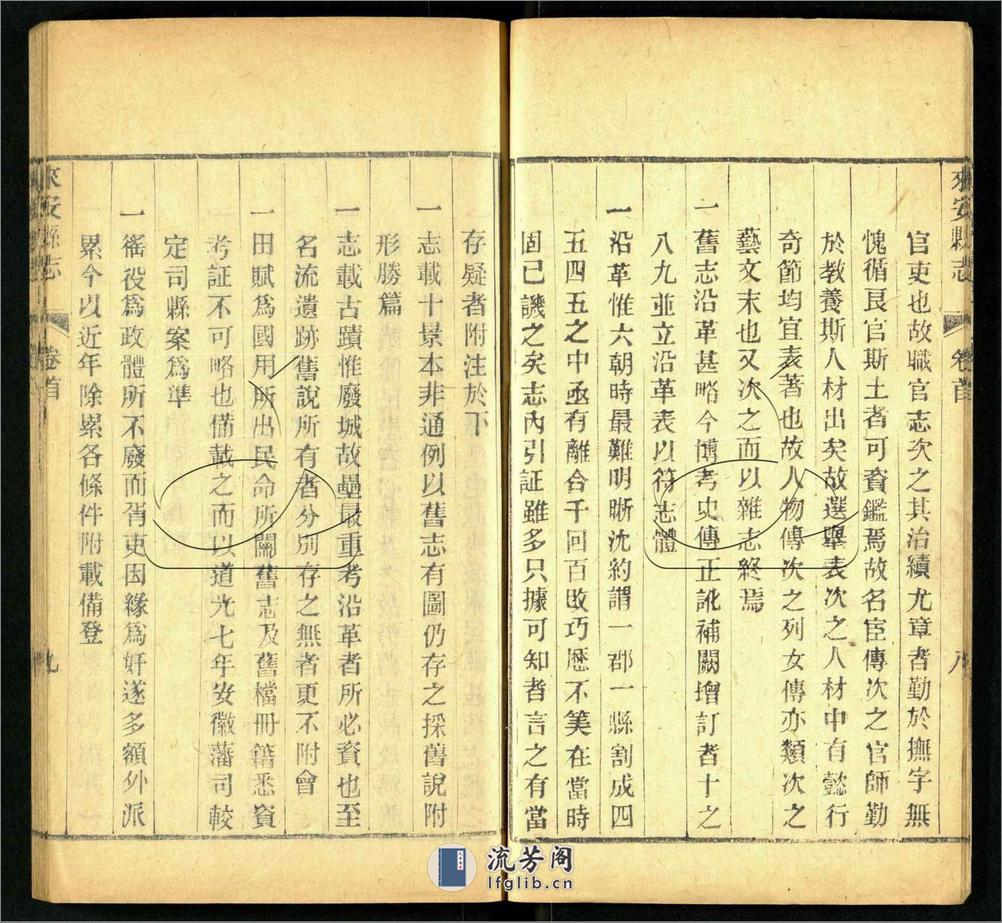 來安縣志
卷首
八
官吏也故職官志次之其治績尤章者勤於撫字無
愧循良官斯土者可資鑑焉故名臣傳次之官師勤
於教養斯人材出矣故選舉表次之人材中有懿行
奇節均宜表著也故人物傳次之列女傳亦類次之
藝文末也又次之而以雜志終焉
一舊志沿革甚略今博考史傳正訛補闕增訂者十之
八九並立沿革表以符志體
一沿革惟六朝時最難明晰沈約謂一郡一縣割成四
五四五之中亟有離合千回百改巧歷不算在當時
固已譏之矣志內引証雖多只據可知者言之有當
存疑者附注於下
一志載十景本非通例以舊志有圖仍存之採舊說附
形勝篇
一志載古蹟惟廢城故壘最重考沿革者所必資也至
名流遺跡舊說所有者分別存之無者更不附會
一田賦爲國用所出民命所關舊志及舊檔冊籍悉資
考証不可略也備載之而以道光七年安徽藩司較
定司縣案爲準
一徭役爲政體所不廢而胥吏因緣爲奸遂多額外派
累今以近年除累各條件附載備登
來安縣志
卷首
九
流芳阁
lfglib.cn